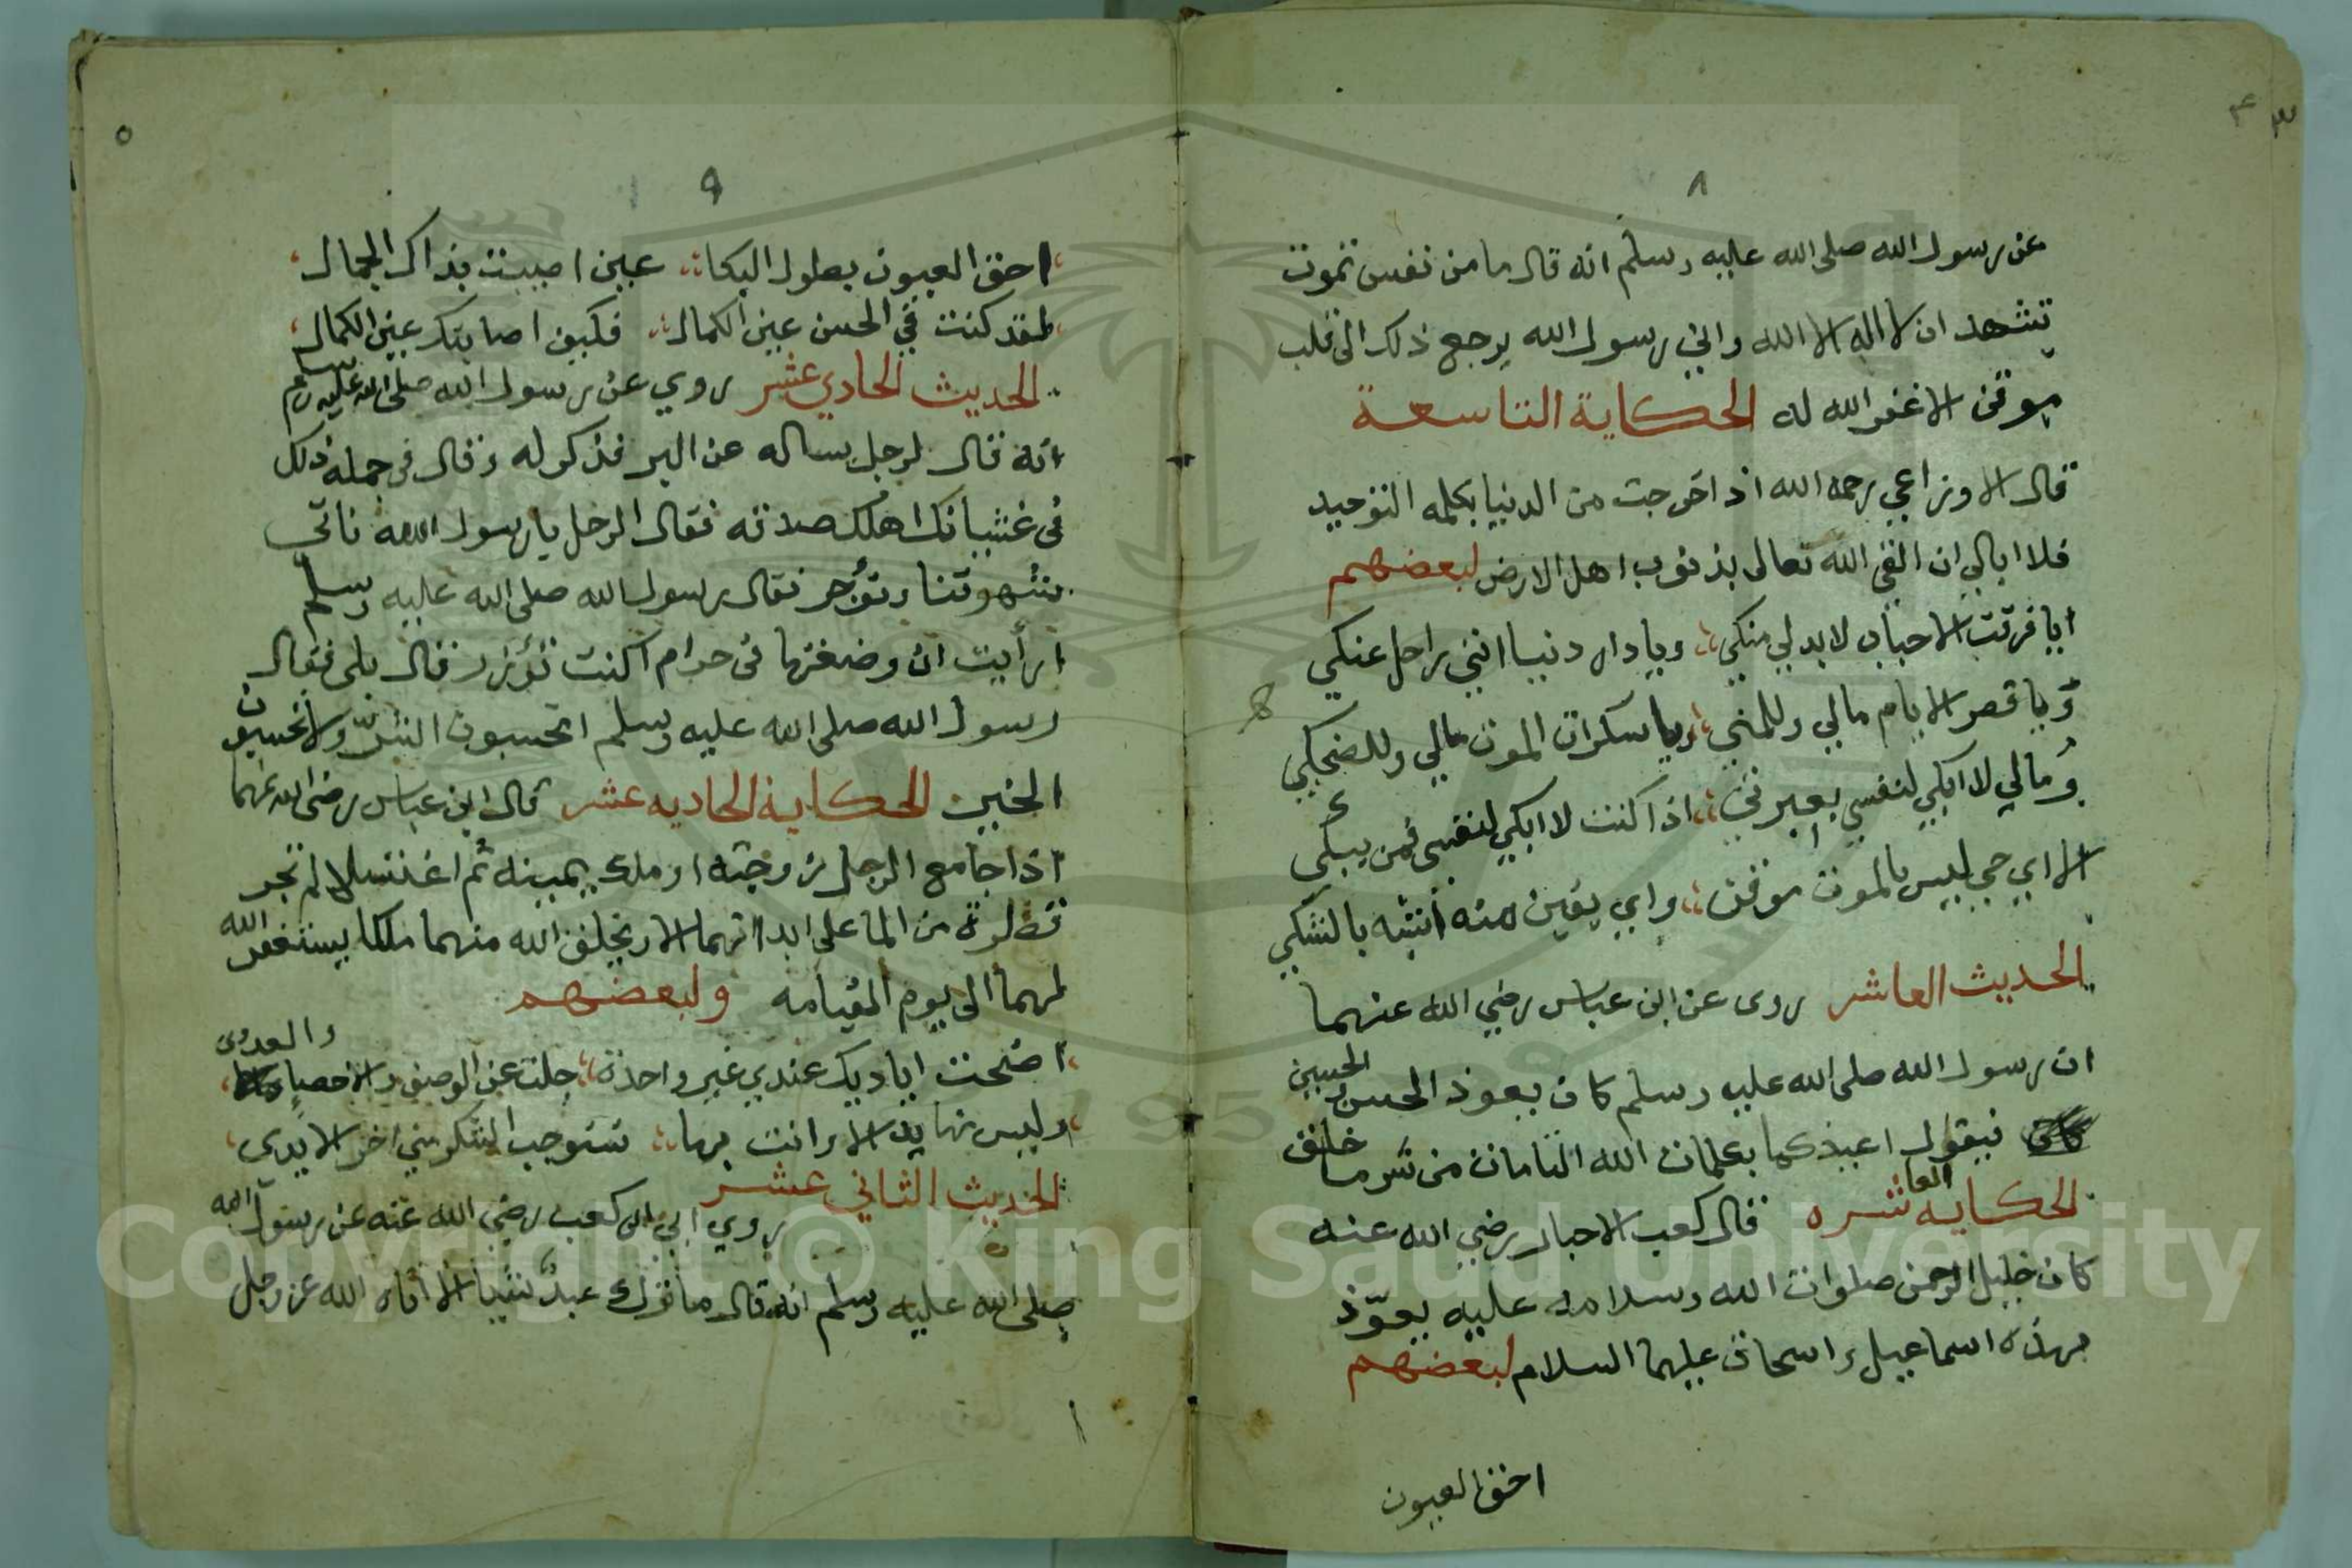 ٨
عن رسول الله صلى الله عليه وسلم انه قال ما من نفس تموت
تشهد ان لا اله الا الله واني رسول الله يرجع ذلك الى قلب
موقن الا غفر الله له الحكاية التاسعة
قال الاوزاعي رحمه الله اذا خرجت من الدنيا بكلمه التوحيد
فلا ابالي ان القى الله تعالى بذنوب اهل الارض لبعضهم
ايا فرقت الاحباب لا بد لي منكي ويا دار دنيا انني راحل عنكي
ويا قصر الايام مالي وللمني ويا سكرات الموت مالي وللضحكي
ومالي لا ابكي لنفسي بعبرتي اذا كنت لا ابكي لنفسي فمن يبكي
الا اي حي ليس بالموت موقن واي يقين منه اشبه بالشكي
الحديث العاشر روى عن ابن عباس رضي الله عنهما
ان رسول الله صلى الله عليه وسلم كان يعوذ الحسن والحسين
فيقول اعيذكما بكلمات الله التامات من شر ما خلق
الحكايه العاشره قال كعب الاحبار رضي الله عنه
كان خليل الرحمن صلوات الله وسلامه عليه يعوّذ
بهذه اسماعيل واسحاق عليهما السلام لبعضهم
احق العيون
٥
٩
احق العيون بطول البكاء عين اصيبت بذاك الجمال
لقد كنت في الحسن عين الكمال فكيف اصابتك عين الكمال
الحديث الحادي عشر روي عن رسول الله صلى الله عليه وسلم
انه قال لرجل ساله عن البر فذكر له وقال في جملة ذلك
في غشيانك اهلك صدقه فقال الرجل يا رسول الله ناتي
شهوتنا ونؤجر فقال رسول الله صلى الله عليه وسلم
ارأيت ان وضعتها في حرام اكنت تؤزر قال بلى فقال
رسول الله صلى الله عليه وسلم اتحسبون الشرّ ولا تحسبون
الخير الحكاية الحاديه عشر قال ابن عباس رضي الله عنهما
اذا جامع الرجل زوجته او ملك يمينه ثم اغتسلا لم تجر
قطرة من الما على ابدانهما الا ويخلق الله منهما ملكا يستغفر الله
لهما الى يوم القيامه ولبعضهم
اضحت اياديك عندي غير واحدة جلت عن الوصف والاحصاء والعدى
وليس نهاية الا وانت بها تستوجب الشكر مني اخر الايدى
الحديث الثاني عشر
روي ابي ابن كعب رضي الله عنه عن رسول الله
صلى الله عليه وسلم انه قال ما ترك عبدٌ شيا الا أتاه الله عز وجل
Copyright © King Saud University
195